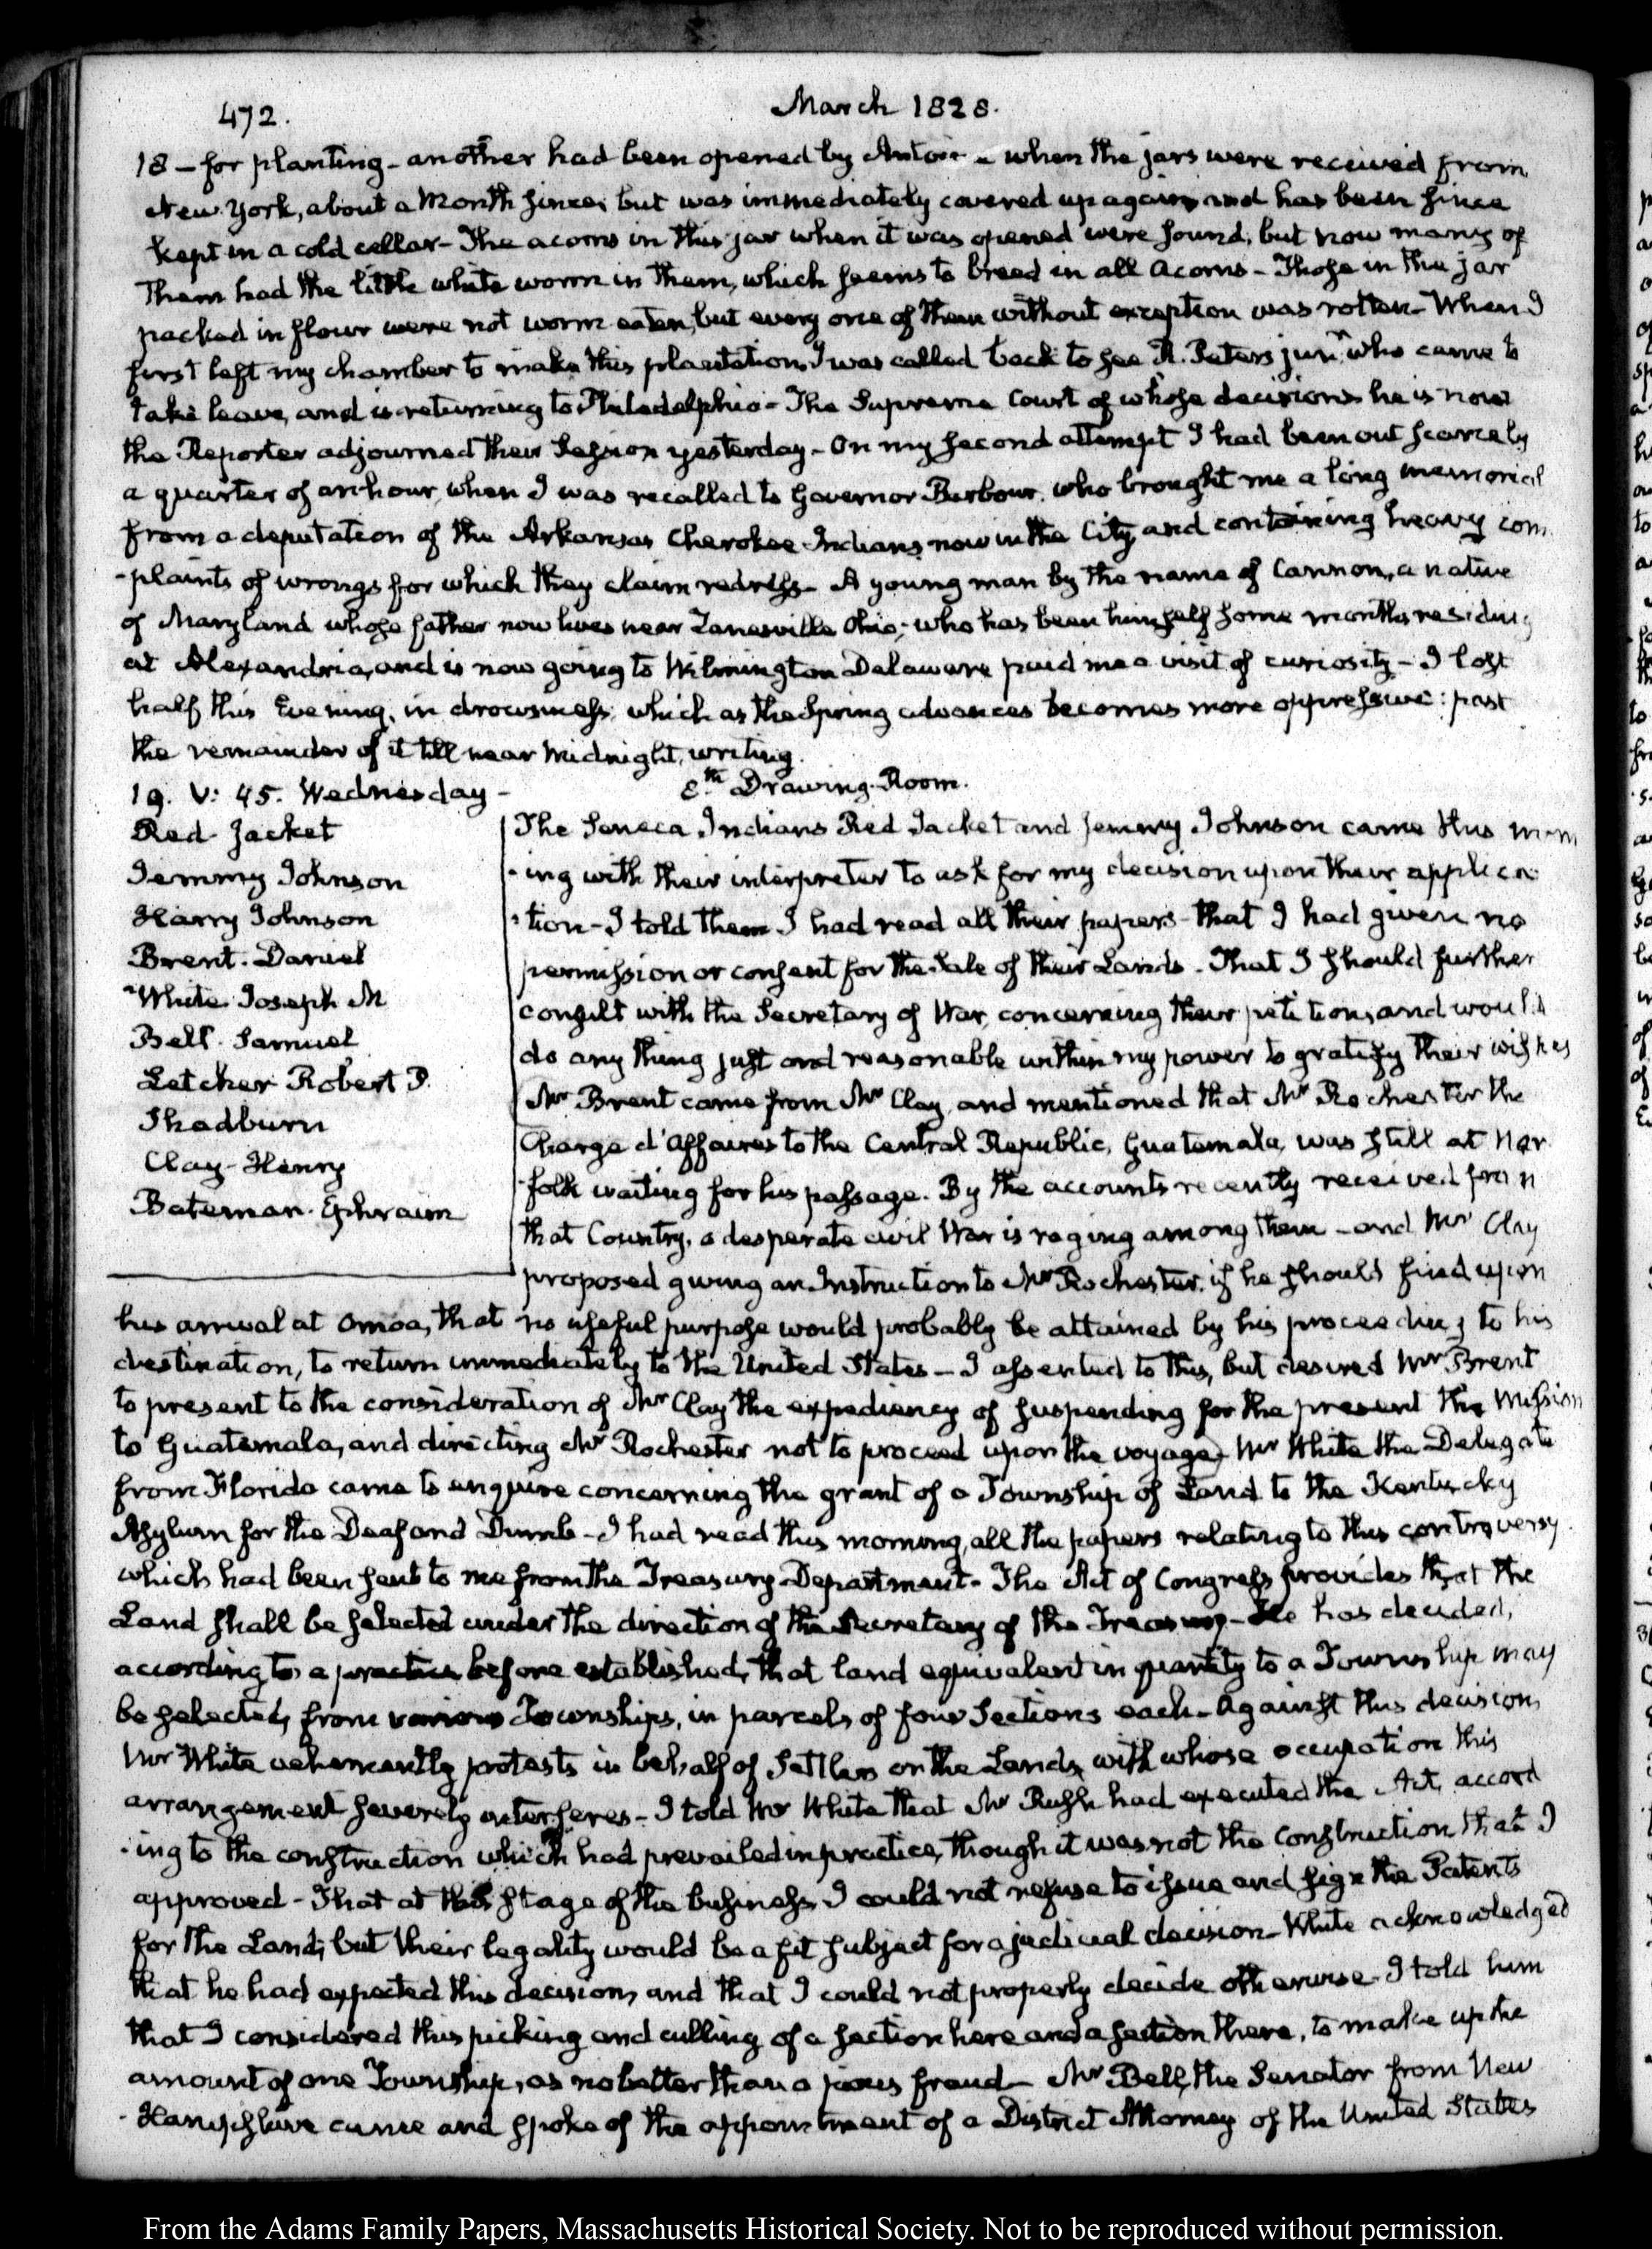 472.
March 1828.
18 – for planting – another had been opened by Antoine – when the jars were received from
New York, about a Month since, but was immediately covered up again and has been since
kept in a cold cellar – The acorns in this jar when it was opened were sound, but now many of
them had the little white worm in them, which seems to breed in all acorns – Those in the jar
packed in flour were not worm eaten, but every one of them without exception was rotten – When I
first left my chamber to make this plantation, I was called back to see R. Peters junr. who came to
take leave, and is returning to Philadelphia – The Supreme Court of whose decisions he is now
the Reporter adjourned their Session yesterday – On my second attempt I had been out scarcely
a quarter of an hour, when I was recalled to Governor Barbour, who brought me a long memorial
from a deputation of the Arkansas Cherokee Indians now in the City and containing heavy com
-plaints of wrongs for which they claim redress – A young man by the name of Cannon, a native
of Maryland whose father now lives near Zanesville Ohio; who has been himself some months residing
at Alexandria, and is now going to Wilmington Delaware paid me a visit of curiosity – I lost
half this Evening, in drowsiness, which as the Spring advances becomes more oppressive: past
the remainder of it till near midnight, writing.
19. V: 45. Wednesday –
8.th Drawing-Room.
Red-Jacket
Jemmy Johnson
Harry Johnson
Brent. Daniel
White. Joseph M
Bell. Samuel
Letcher Robert P.
Thadburn
Clay-Henry
Bateman. Ephraim
The Seneca Indians Red Jacket and Jemmy Johnson came this morn
-ing with their interpreter to ask for my decision upon their applica
-tion – I told them I had read all their papers – that I had given no
permission or consent for the sale of their Lands. That I should further
consult with the Secretary of War, concerning their petition, and would
do any thing just and reasonable within my power to gratify their wishes
Mr Brent came from Mr Clay, and mentioned that Mr Rochester the
Charge d'Affaires to the Central Republic, Guatemala, was still at Nor
-folk waiting for his passage. By the accounts recently received from
that Country, a desperate civil War is raging among them – and Mr Clay
proposed giving an Instruction to Mr Rochester, if he should find upon
his arrival at Omoa, that no useful purpose would probably be attained by his proceeding to his
destination, to return immediately to the United States – I assented to this, but desired Mr Brent
to present to the consideration of Mr Clay the expediency of suspending for the present the Mission
to Guatemala, and directing Mr Rochester not to proceed upon the voyage. Mr White the Delegate
from Florida came to enquire concerning the grant of a Township of Land to the Kentucky
Asylum for the Deaf and Dumb – I had read this morning, all the papers relating to this controversy
which had been sent to me from the Treasury Department – The Act of Congress provides that the
Land shall be selected under the direction of the Secretary of the Treasury – He has decided,
according to a practice before established, that land equivalent in quantity to a Township may
be selected, from various Townships, in parcels of four Sections each – Against this decision
Mr White vehemently protests in behalf of Settlers on the Lands, with whose occupation this
arrangement severely interferes – I told Mr White that Mr Rush had executed the Act, accord
-ing to the construction which had prevailed in practice, though it was not the construction that I
approved – That at this stage of the business, I could not refuse to issue and sign the Patents
for the Land; but their legality would be a fit subject for a judicial decision – White acknowledged
that he had expected this decision, and that I could not properly decide otherwise – I told him
that I considered this picking and culling of a section here and a section there, to make up the
amount of one Township, as no better than a pious fraud – Mr Bell, the Senator from New
-Hampshire came and spoke of the appointment of a District Attorney of the United States
From the Adams Family Papers, Massachusetts Historical Society. Not to be reproduced without permission.